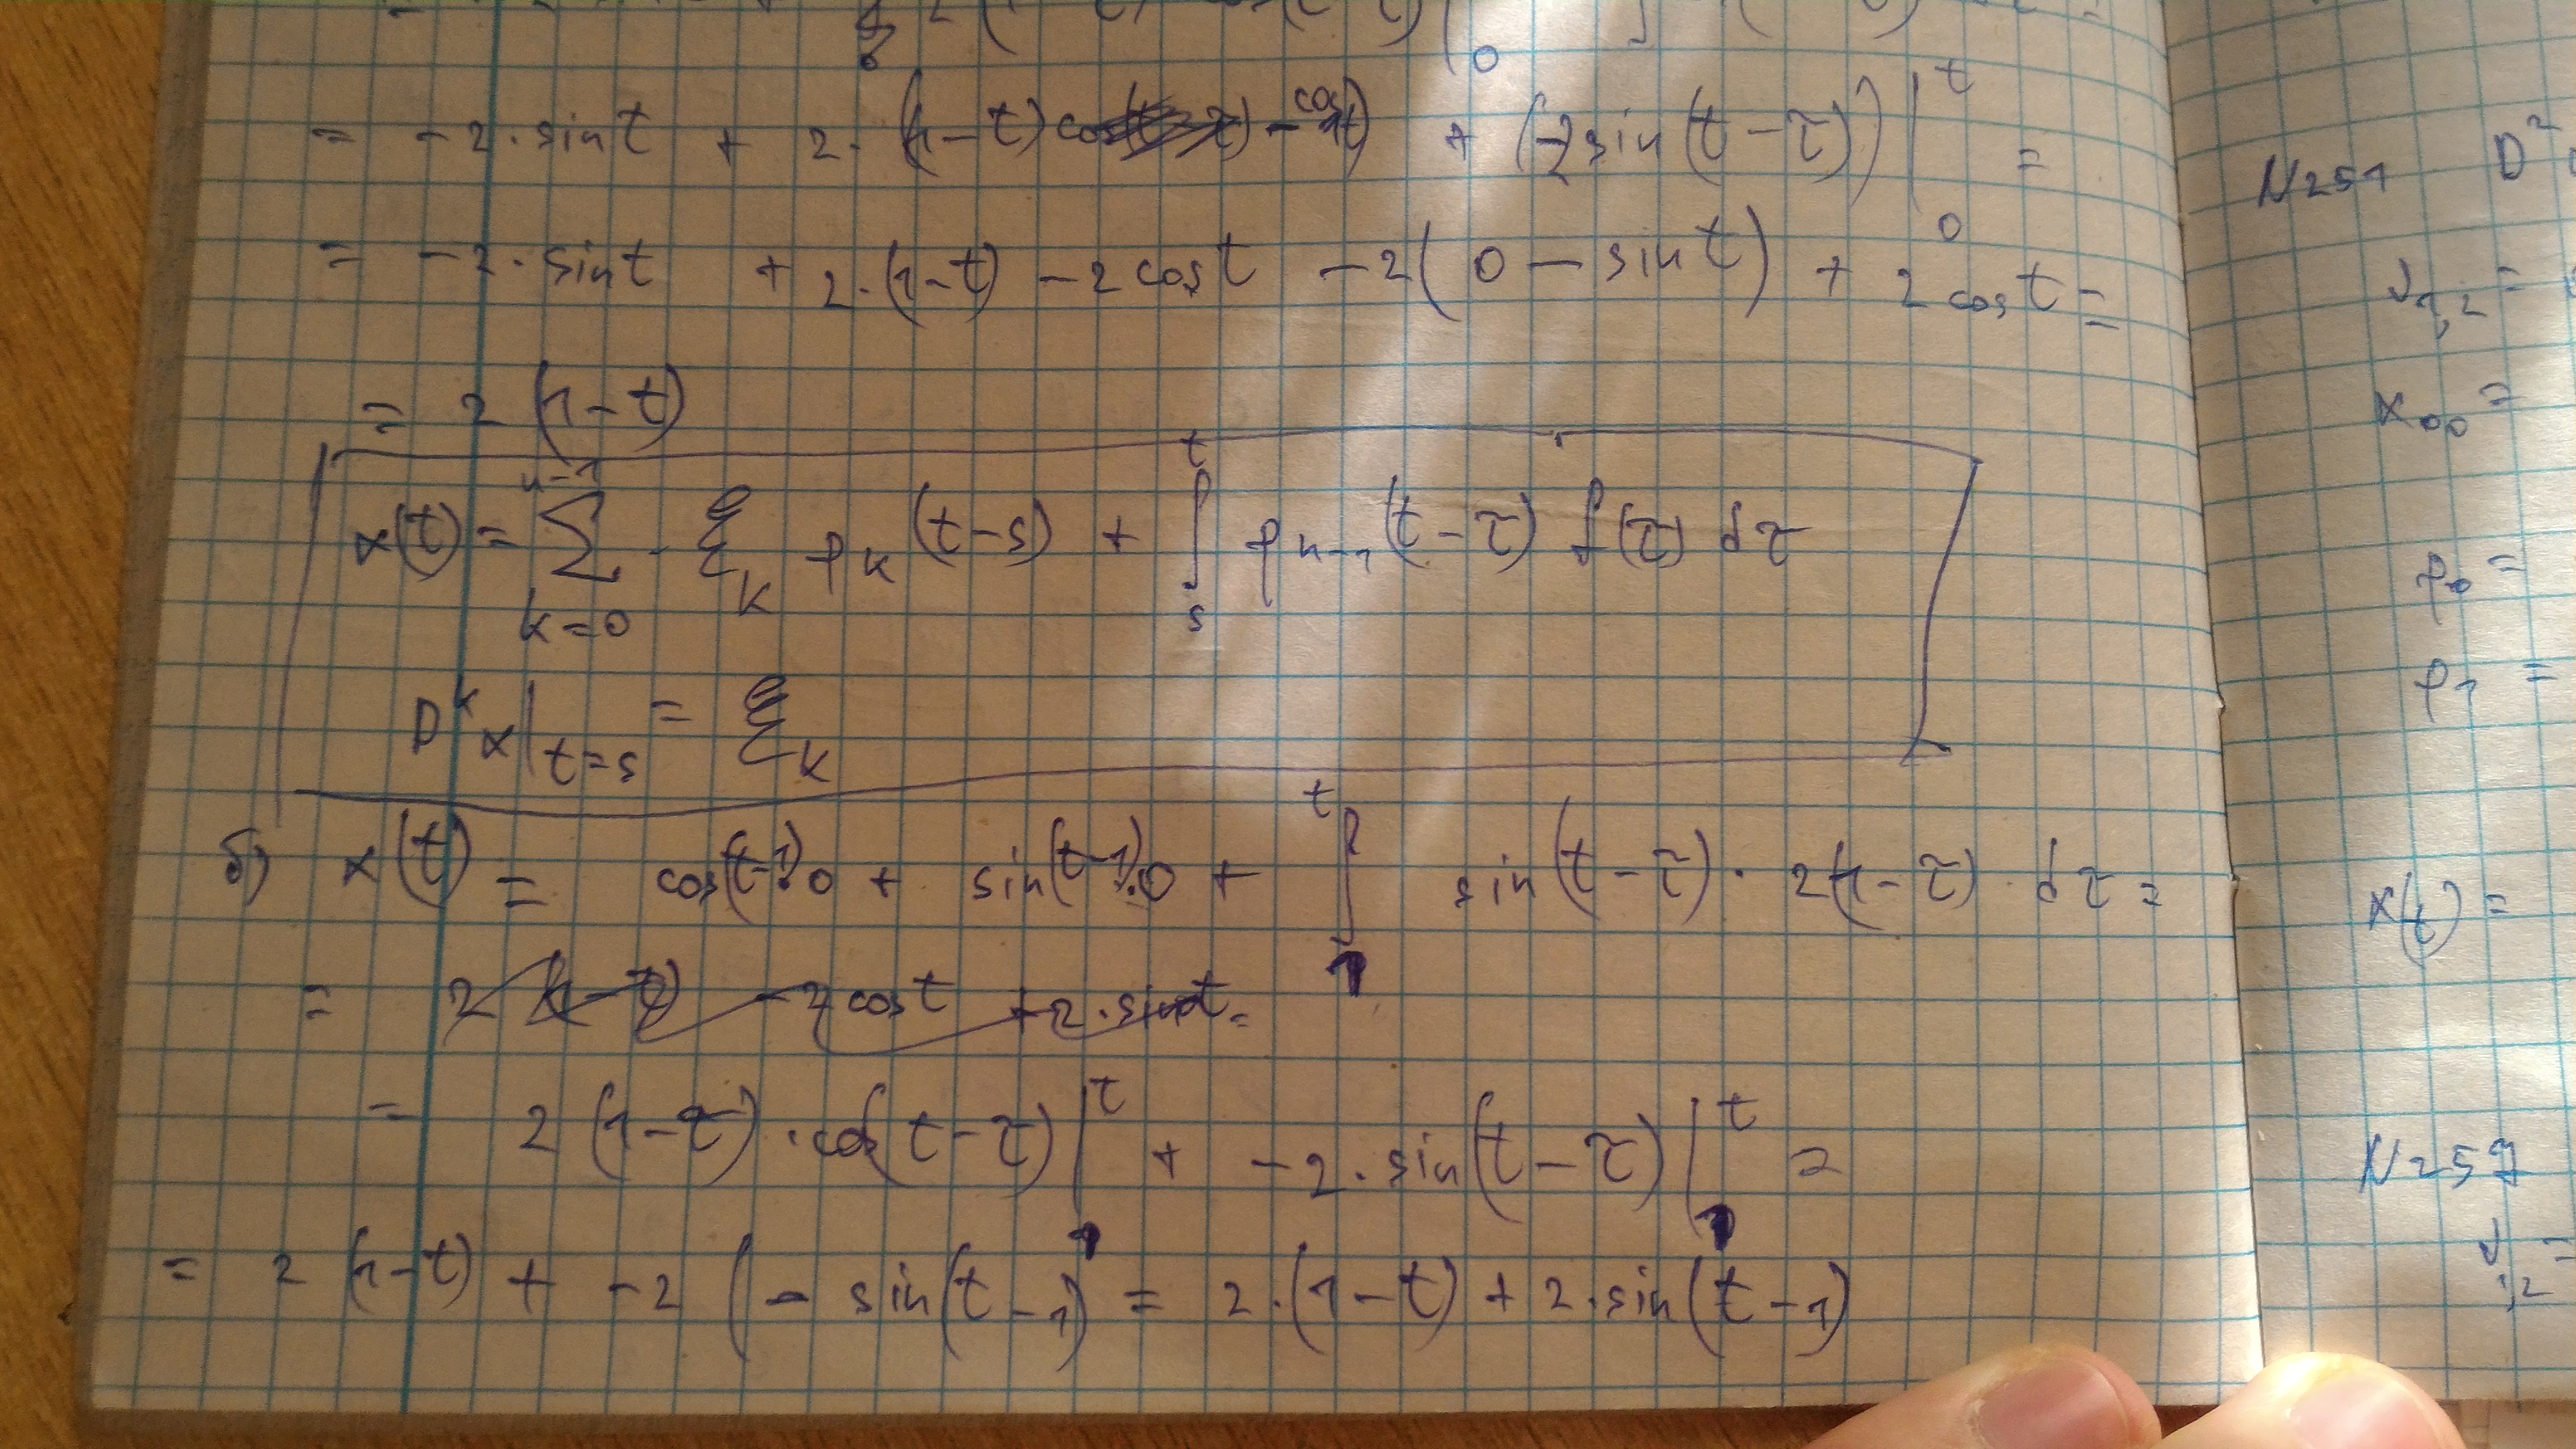 = -2·sin t + 2·((1-t) - cos t) + (-2 sin(t-τ))|₀ᵗ =
= -2·sin t + 2·(1-t) - 2 cos t - 2(0 - sin t) + 2 cos t =
= 2 (1-t)
x(t) = Σ_{k=0}^{n-1} · ξ_k φ_k (t-s) + ∫_s^t φ_{n-1}(t-τ) f(τ) dτ
D^k x|_{t=s} = ξ_k
б) x(t) = cos(t-1)·0 + sin(t-1)·0 + ∫_1^t sin(t-τ)·2(1-τ)·dτ =
= 2(1-t) - 2 cos t + 2·sin t =
= 2(1-τ)·cos(t-τ)|_1^t + -2·sin(t-τ)|_1^t =
= 2(1-t) + -2(- sin(t-1) = 2·(1-t) + 2·sin(t-1)
N251 D²
ν_{1,2} =
x₀₀ =
φ₀ =
φ₁ =
x(t) =
N257
ν_{1,2} =